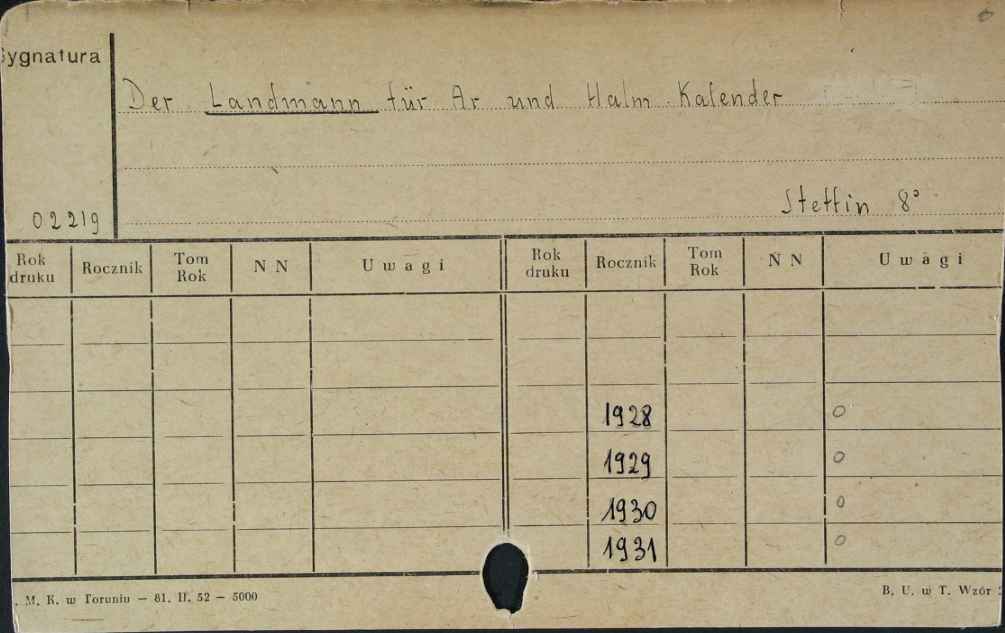 Sygnatura
Der Landmann für Ar und Halm Kalender
Stettin 8°
02219
Rok druku Rocznik Tom Rok N N Uwagi Rok druku Rocznik Tom Rok N N Uwagi
1928 0
1929 0
1930 0
1931 0
. M. K. w Toruniu — 81. II. 52 — 5000 B. U. w T. Wzór